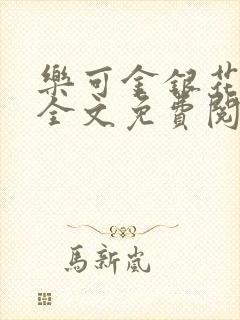 樂可金銀花
全文免費閱
馬新嵐